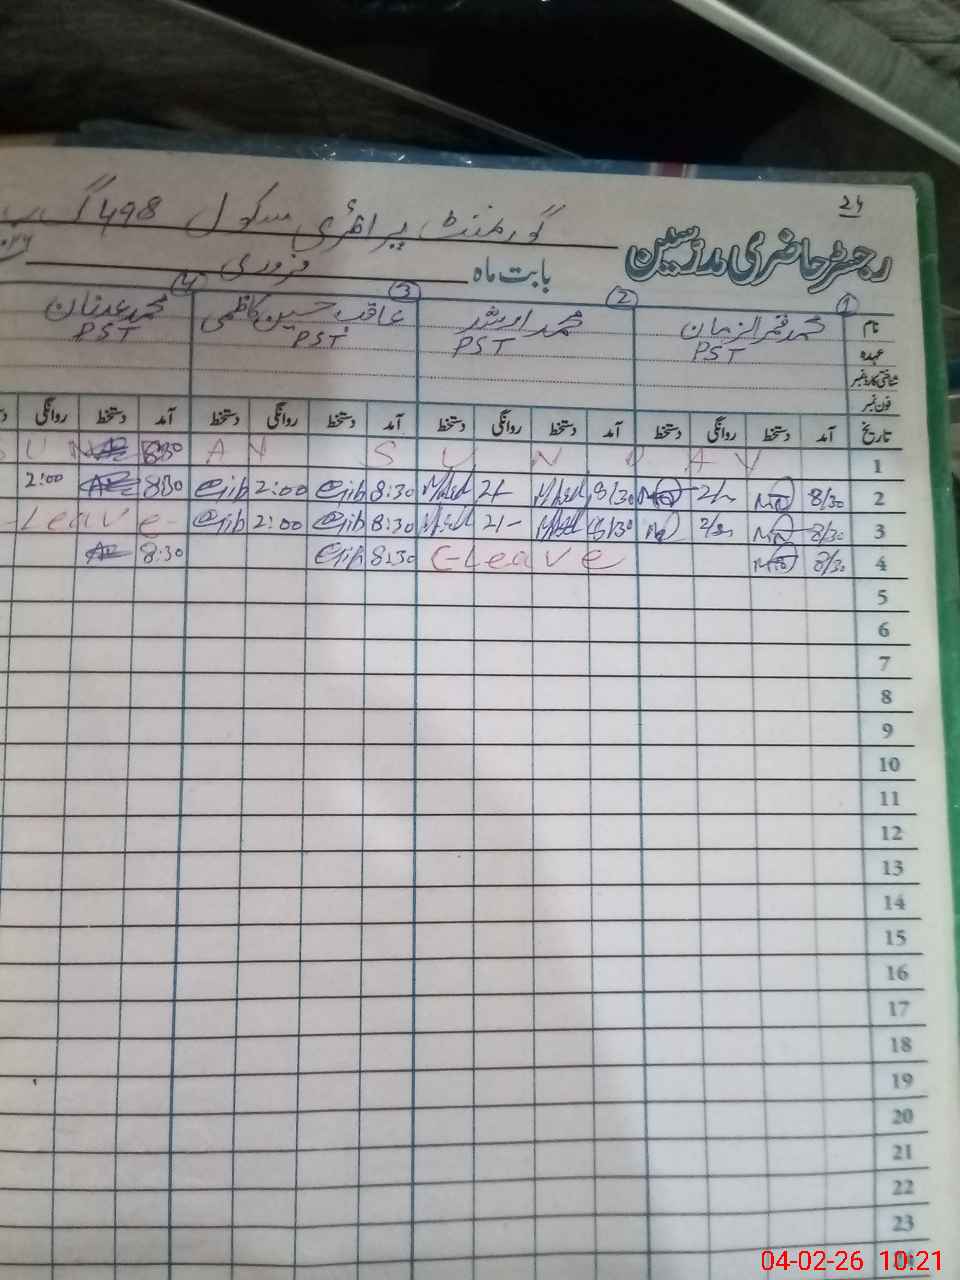 24
گورنمنٹ پرائمری سکول 498 گ ب
رجسٹر حاضری مدرسین
بابت ماہ فروری
1 2 3 4
نام محمد قمر الزمان محمد اویس عاقب حسین کاظمی محمد عدنان
عہدہ PST PST PST PST
شناختی کارڈ نمبر
فون نمبر
تاریخ آمد دستخط روانگی دستخط آمد دستخط روانگی دستخط آمد دستخط روانگی دستخط آمد دستخط روانگی
1 S U N D A Y S U N 8:30
2 8/30 2/- 8/30 2/- 8:30 2:00 8:30 2:00
3 8/30 8/30 2/- 8:30 2:00 Leave
4 8/30 C-Leave 8:30 8:30
5
6
7
8
9
10
11
12
13
14
15
16
17
18
19
20
21
22
23
04-02-26 10:21